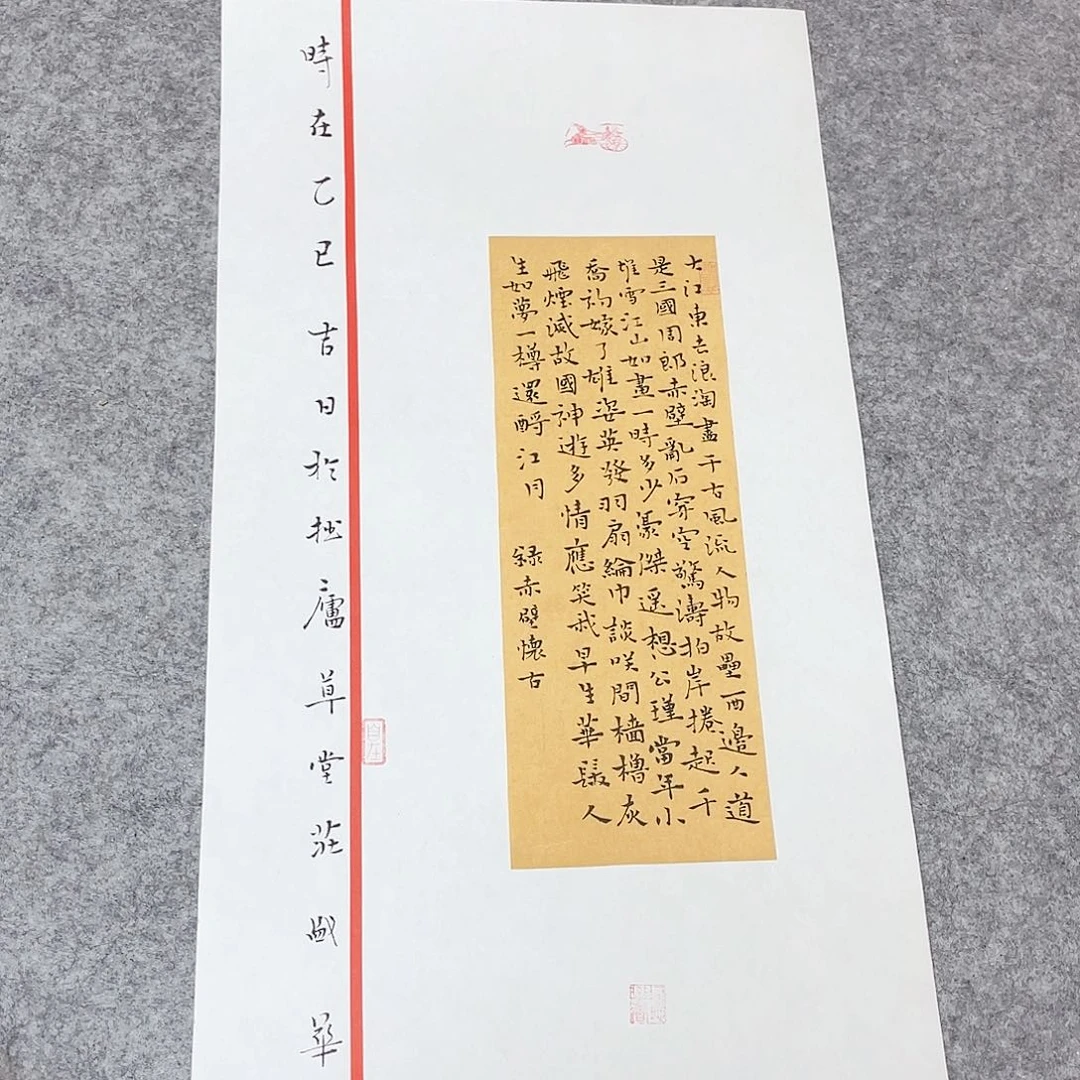 大江東去浪淘盡千古風流人物故壘西邊人道
是三國周郎赤壁亂石穿空驚濤拍岸捲起千
堆雪江山如畫一時多少豪傑遥想公瑾當年小
喬初嫁了雄姿英發羽扇綸巾談咲間檣櫓灰
飛煙滅故國神遊多情應笑我早生華髮人
生如夢一樽還酹江月 録赤壁懷古
時在乙巳吉日於拙廬草堂莊華
自在